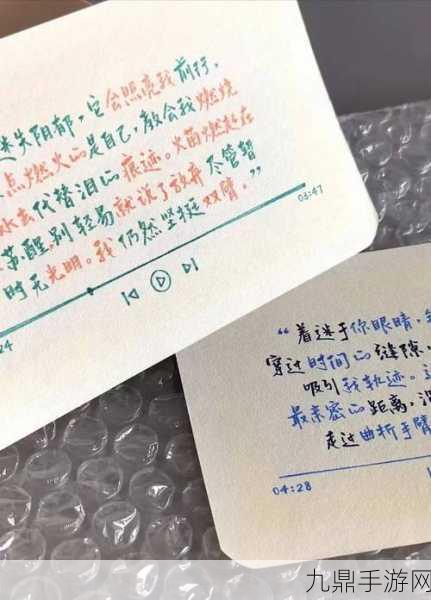 迷失阴郁，它会照亮我前行，
点燃火的是自己，教会我燃烧
水去代替泪的痕迹。火苗燃起在
苏醒，别轻易就说了放弃 尽管暂
时无光明。我仍然坚挺双臂。”
03:47
24
“着迷于你眼睛，
穿过时间的缝隙，
吸引我轨迹。
最亲密的距离，
走过曲折手臂
04:28
九鼎手游网